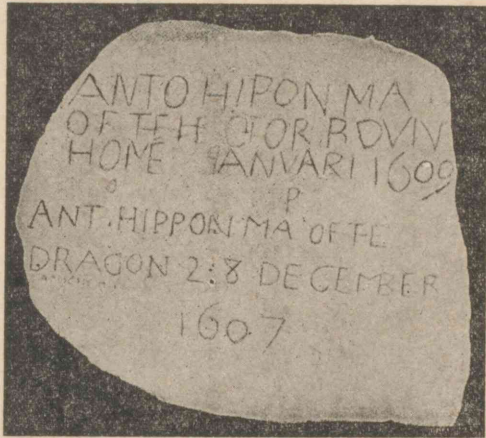 ANTO HIPON MA
OF TEH CTOR BOVVN
HOME IANVARI 1609
ANT. HIPPON MA OF TE
DRAGON 28 DECEMBER
1607